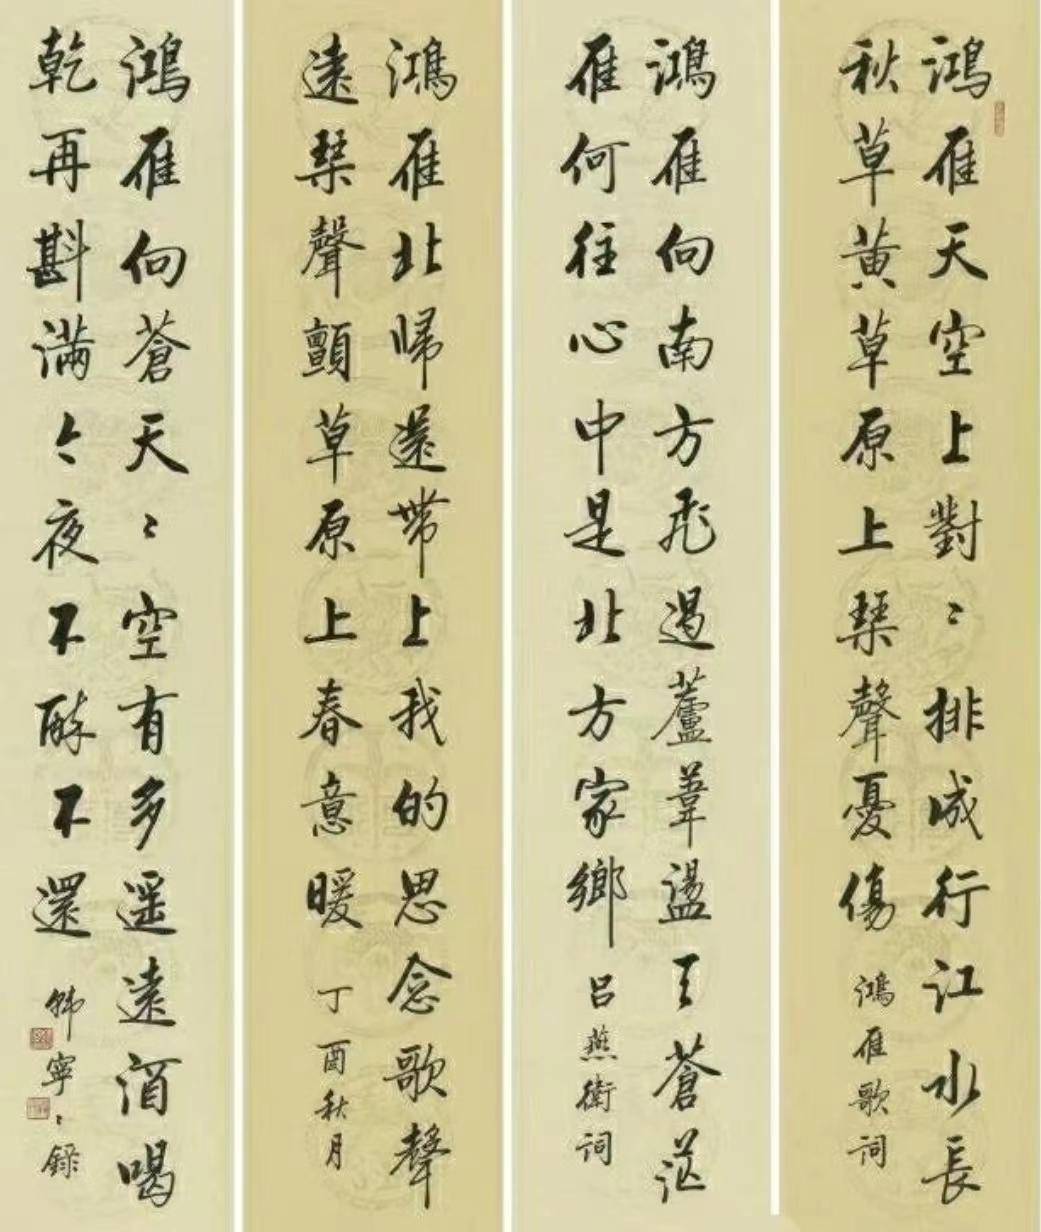 鴻雁天空上對〻排成行江水長
秋草黃草原上琴聲憂傷
鴻雁歌詞
鴻雁向南方飛過蘆葦盪天蒼茫
雁何往心中是北方家鄉
呂燕衛詞
鴻雁北歸還帶上我的思念歌聲
遠琴聲顫草原上春意暖
丁酉秋月
鴻雁向蒼天〻空有多遙遠酒喝
乾再斟滿今夜不醉不還
韓寧〻錄